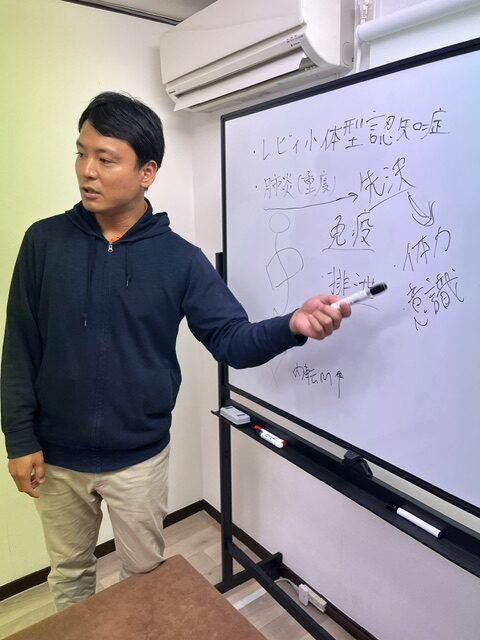 ・レビィ小体型認知症
・肺炎(重度)→成決
免疫
・体力
排泄
・意識
内転M